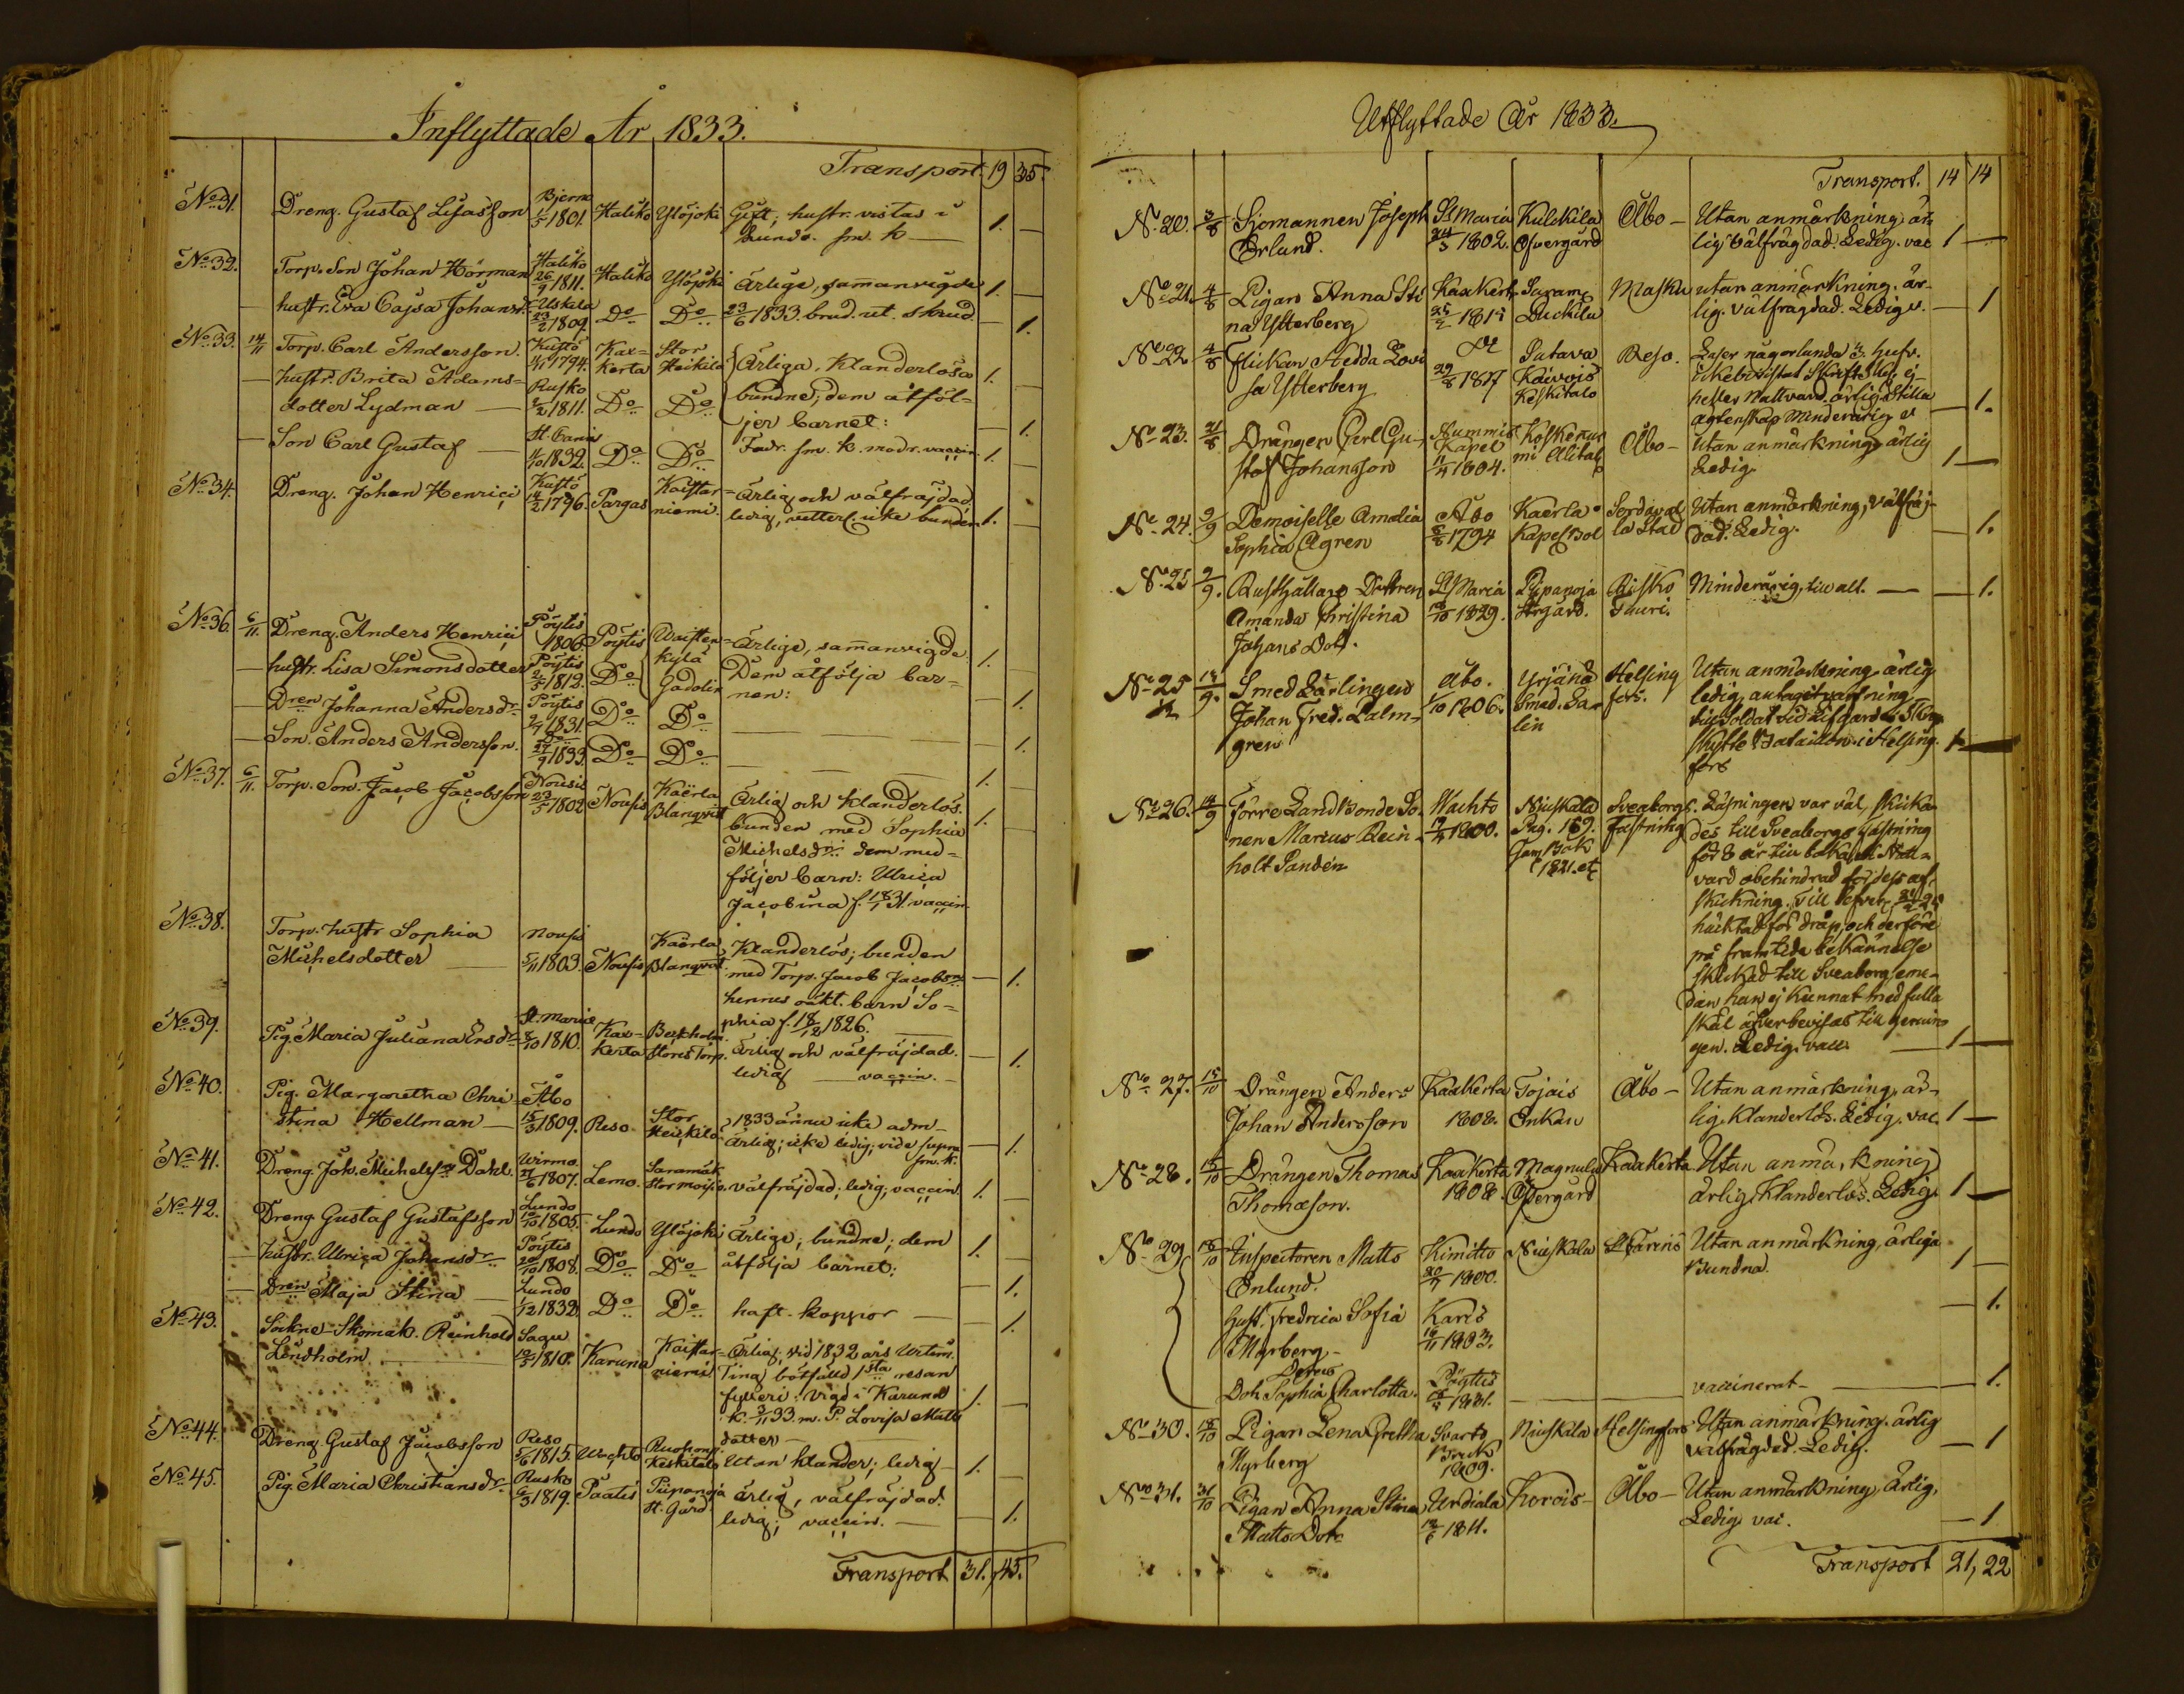 Inflyttade År 1833.
Transport. 19 35.
No 31. Dreng. Gustaf Lisasson Bjerno 1/5 1801. Haliko Ylöjoki Gift; hustr. vistas i
Lundo. sm. k — 1. —
No 32. Torp. Son Johan Hörman Haliko 26/9 1811. Haliko Ylöjoki Ärlige, samanvigde 1. —
— hustr. Eva Cajsa Johansdr. Uskela 23/2 1809. Do Do 23/6 1833. brud. ut. skrud. — 1.
No 33. 14/11 Torp. Carl Andersson. Kustö 1794. Kax= Stor
kerta Heikilä Ärliga, Klanderlösa 1. —
— hustr. Brita Adams= Rusko bundne; dem åtföl=
dotter Lydman — 1811. Do Do jer barnet: — 1.
— Son Carl Gustaf — St. Carins 1832. Do Do Fadr. sm. k. modr. vaccin. 1. —
No 34. Dreng. Johan Henrici Kustö 14/2 1796. Pargas Kaistar=
niemi. Ärlig och välfräjdad
ledig, vetterl. icke bunden 1. —
No 36. 6/11. Dreng. Anders Henrici Pöytis 1806. Pöytis Waisten=
kylä Ärlige, samanvigde 1. —
— hustr. Lisa Simonsdotter Pöytis 1812. Do Gadolin Dem åtfölja bar=
nen: — 1.
— Dren Johanna Andersdr. Pöytis 1831. Do Do — 1.
— Son. Anders Andersson. Do 27/9 1833. Do Do — 1. —
No 37. 6/11. Torp. Son. Jacob Jacobsson Nousis 23/5 1802 Nousis Kaërla
Blanqvist Ärlig och klanderlös.
bunden med Sophia 1. —
Michelsdr. dem med=
följer barn: Ulrica
Jacobina f. 18/1 31. vaccin.
No 38. Torp. hustr Sophia
Michelsdotter — Nousis 5/11 1803. Nousis Kaërla
Blanqvist. Klanderlös; bunden
med Torp. Jacob Jacobsn — 1.
hennes oäkt. barn So=
phia f. 18/12 1826.
No 39. Pig. Maria Juliana Ersdr. St. Marie 8/10 1810. Kax=
kerta Berkholm
Störis Torp. Ärlig och välfräjdad. — 1.
ledig — vaccin. —
No 40. Pig. Margaretha Chri=
stina Hellman — Åbo 15/3 1809. Reso Stor
Heickilä 1833 ännu icke adm —
Ärlig; icke ledig; vide supra — 1.
sm. k.
No 41. Dreng. Joh. Michelsson Dahl. Wirmo. 27/6 1807. Lemo. Saramäk
Stormoisio. välfräjdad; ledig; vaccin. 1. —
No 42. Dreng. Gustaf Gustafsson Lundo 10/10 1805. Lundo Ylöjoki Ärlige; bundne; dem 1. —
— hustr. Ulrica Johansdr Pöytis 20/10 1808. Do Do åtfölja barnet: — 1.
— Dren Maja Stina — Lundo 1/12 1832. Do Do haft. koppor — — 1.
No 43. Sokne=Skomak. Reinhold
Lindholm. Sagu 10/5 1810. Karuna Kaistar=
niemi Ärlig; vid 1832 års Urtim.
Ting bötfälld 1sta resan
fylleri. Vigd i Karuna 1. —
k. 3/11 33. m. P. Lovisa Matts
dotter —
No 44. Dreng. Gustaf Jacobsson Reso 5/6 1815. Wachto Ruohonp.
Keskitalo Utan klander; ledig 1. —
No 45. Pig. Maria Christiansdr. Rusko 6/3 1819. Paatis Piipanoja
St. Gård. Ärlig, välfräjdad.
ledig; vaccin. — — 1.
Transport 31. 45.
Utflyttade År 1833.
Transport. 14 14
No 20. 3/8 Sjomannen Joseph
Erlund. St Maria 24/3 1802. Kulckila
Ofvergård Åbo — Utan anmärkning är=
lig välfrägdad. Ledig. vac 1 —
No 21. 4/8 Pigan Anna Sti
na Ytterberg Kaxkert 25/2 1815 Saramä
Luckila Masku utan anmärkning. är
lig. välfrägdad. Ledig v. — 1
No 22 4/8 Flickan Hedda Lovi
sa Ytterberg 29/8 1817 Satava
Kaivois
Keskitalo Reso. Läser någorlunda 3. hufv.
heller Nattvard. ärlig. Stilla
Egtenskap Minderårig v — 1.
No 23. 21/8 Drängen Carl Gu=
staf Johansson Nummis
Kapel 1804. Koskenur
mi Alitalo Åbo — Utan anmärkning ärlig
Ledig. 1 —
No 24. 2/9 Demoiselle Amalia
Sophia Ågren Åbo 8/6 1794 Kaerla
Kapelbol Sordaval
la Stad Utan anmärkning, välfräj
dad. Ledig. — 1.
No 25 2/9. Rusthållars Dottren
Amanda Christina
Johans Dotr. St Maria 12/10 1829. Piipanoja
Årgård. Rusko
Tauri. Minderårig, till all. — — 1.
No 25 1/2 14/9. Smed Lärlingen
Johan Fred. Palm=
gren Åbo. 1/10 1806. Yrjänä
Smed. Sa
lin Helsing
fors. Utan anmärkning ärlig
ledig, antagit värfning
till Soldat vid Lifgardes Skarp
skytte Bataillon i Helsing. 1. —
fors
No 26. 14/9 Förre Landbonde So=
nen Marcus Rein=
holt Sandén Wachto 19/4 1800. Niuskala
Pag. 169.
Jem Bok
1821. etc Sveaborgs
Fästning Läsningen var väl, skicka
des till Sveaborgs fästning
vard obehindrad för dess af
skickning. Till
häktad för dråp, och derföre
på framtida bekännelse
skickad till Sveaborg eme=
dan han ej kunnat med fulla
skäl öfverbevisas till gernin
gen. Ledig. vacc. — 1 —
No 27. 15/10 Drängen Anders
Johan Andersson Kaxkerta 1808. Tojais
Enkan Åbo — Utan anmärkning, är=
lig. Klanderlös. Ledig. vac. 1 —
No 28. 15/10 Drängen Thomas
Thomæson. Kaxkerta 1808. Magnula
Öfvergård Kaxkerta Utan anmärkning
ärlig Klanderlös. Ledig. 1 —
No 29. 18/10 Inspectoren Matts
Enlund. Kimitto 20/7 1800. Niuskala St Carins Utan anmärkning, ärliga
Bundna. 1 —
Hust. Fredrica Sofia
Myrberg — Karis 16/11 1803. — 1.
Deras
Dotr Sophia Charlotta. Pöyttis 1831. — vaccinerat — — 1.
No 30. 18/10 Pigan Lena Gretha
Myrberg Svarto
Bruk
1809. Niuskala Helsingfors Utan anmärkning. ärlig
välfrägdad. Ledig. — 1
No 31. 31/10 Pigan Anna Stina
Matts Dotr Urdiala 19/6 1811. Korois — Åbo — Utan anmärkning, Ärlig,
Ledig vac. — 1
Transport 21, 22